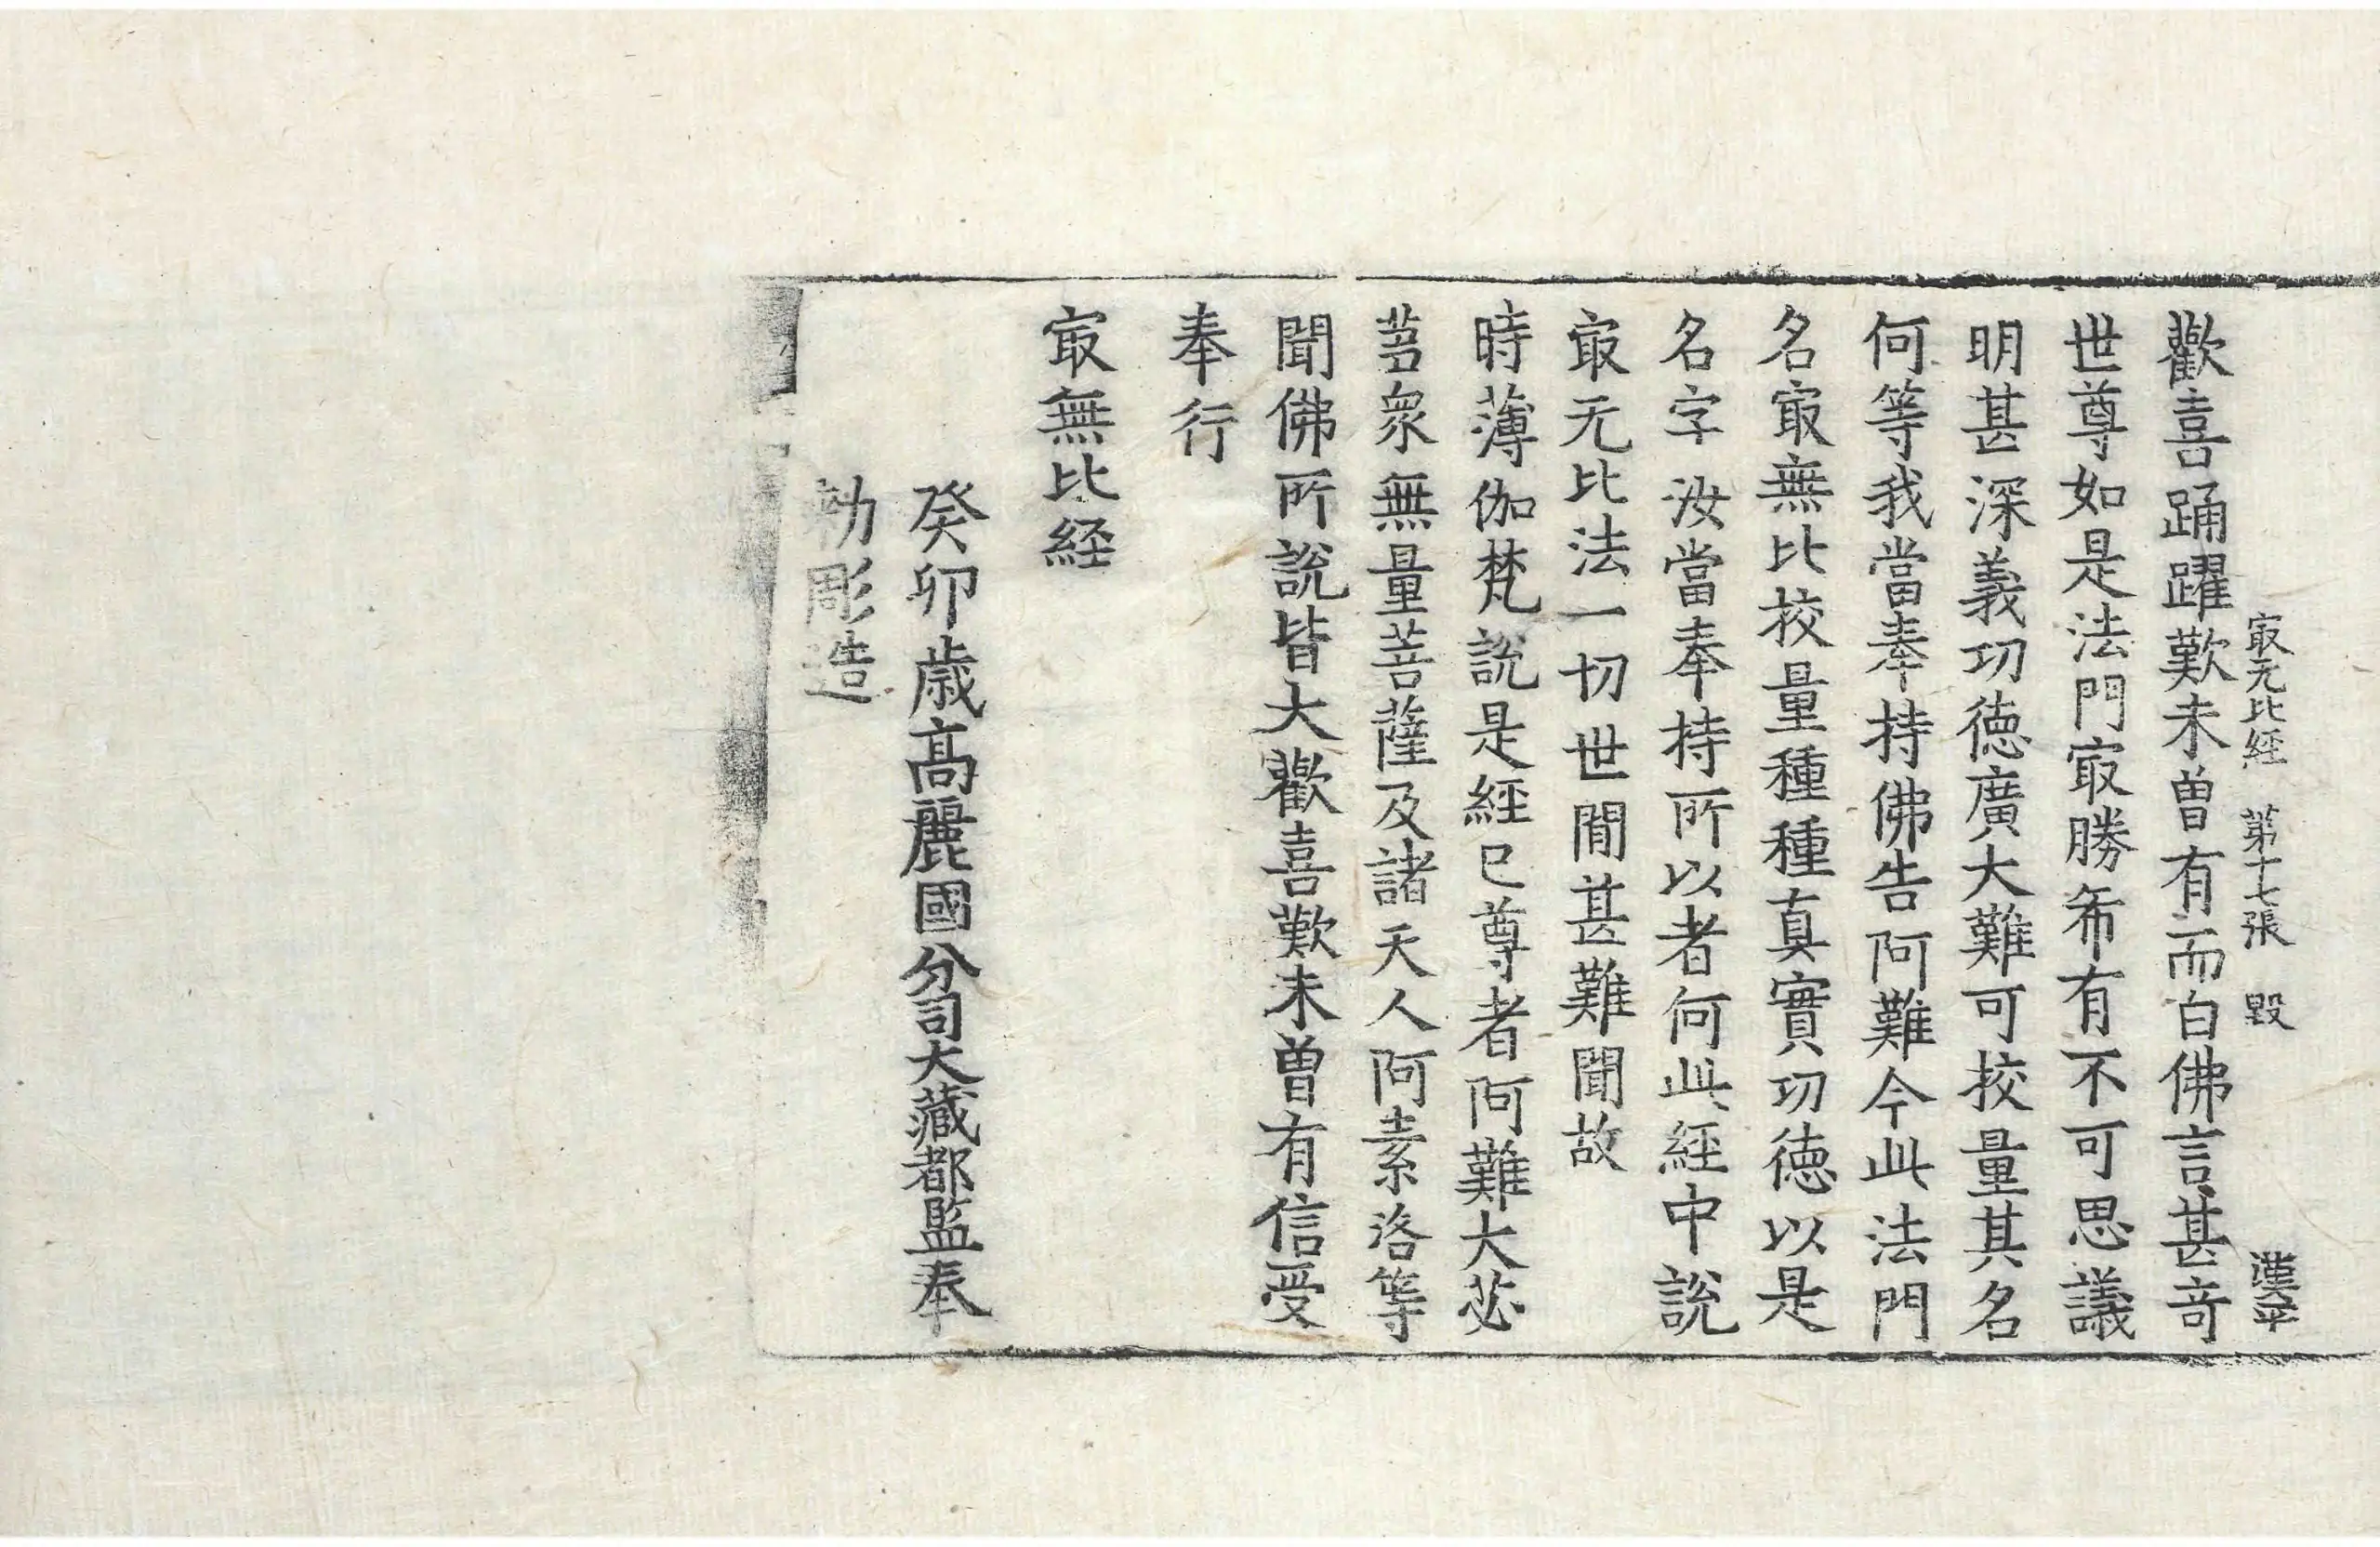 冣无比經 第十七張 毀 漢平
歡喜踊躍歎未曽有而白佛言甚奇
世尊如是法門冣勝希有不可思議
明甚深義功徳廣大難可挍量其名
何等我當奉持佛告阿難今此法門
名冣無比挍量種種真實功徳以是
名字汝當奉持所以者何此經中說
冣无比法一切世間甚難聞故
時薄伽梵說是經已尊者阿難大苾
蒭衆無量菩薩及諸天人阿素洛等
聞佛所說皆大歡喜歎未曽有信受
奉行
冣無比経
癸卯歳髙麗國分司大藏都監奉
勑彫造